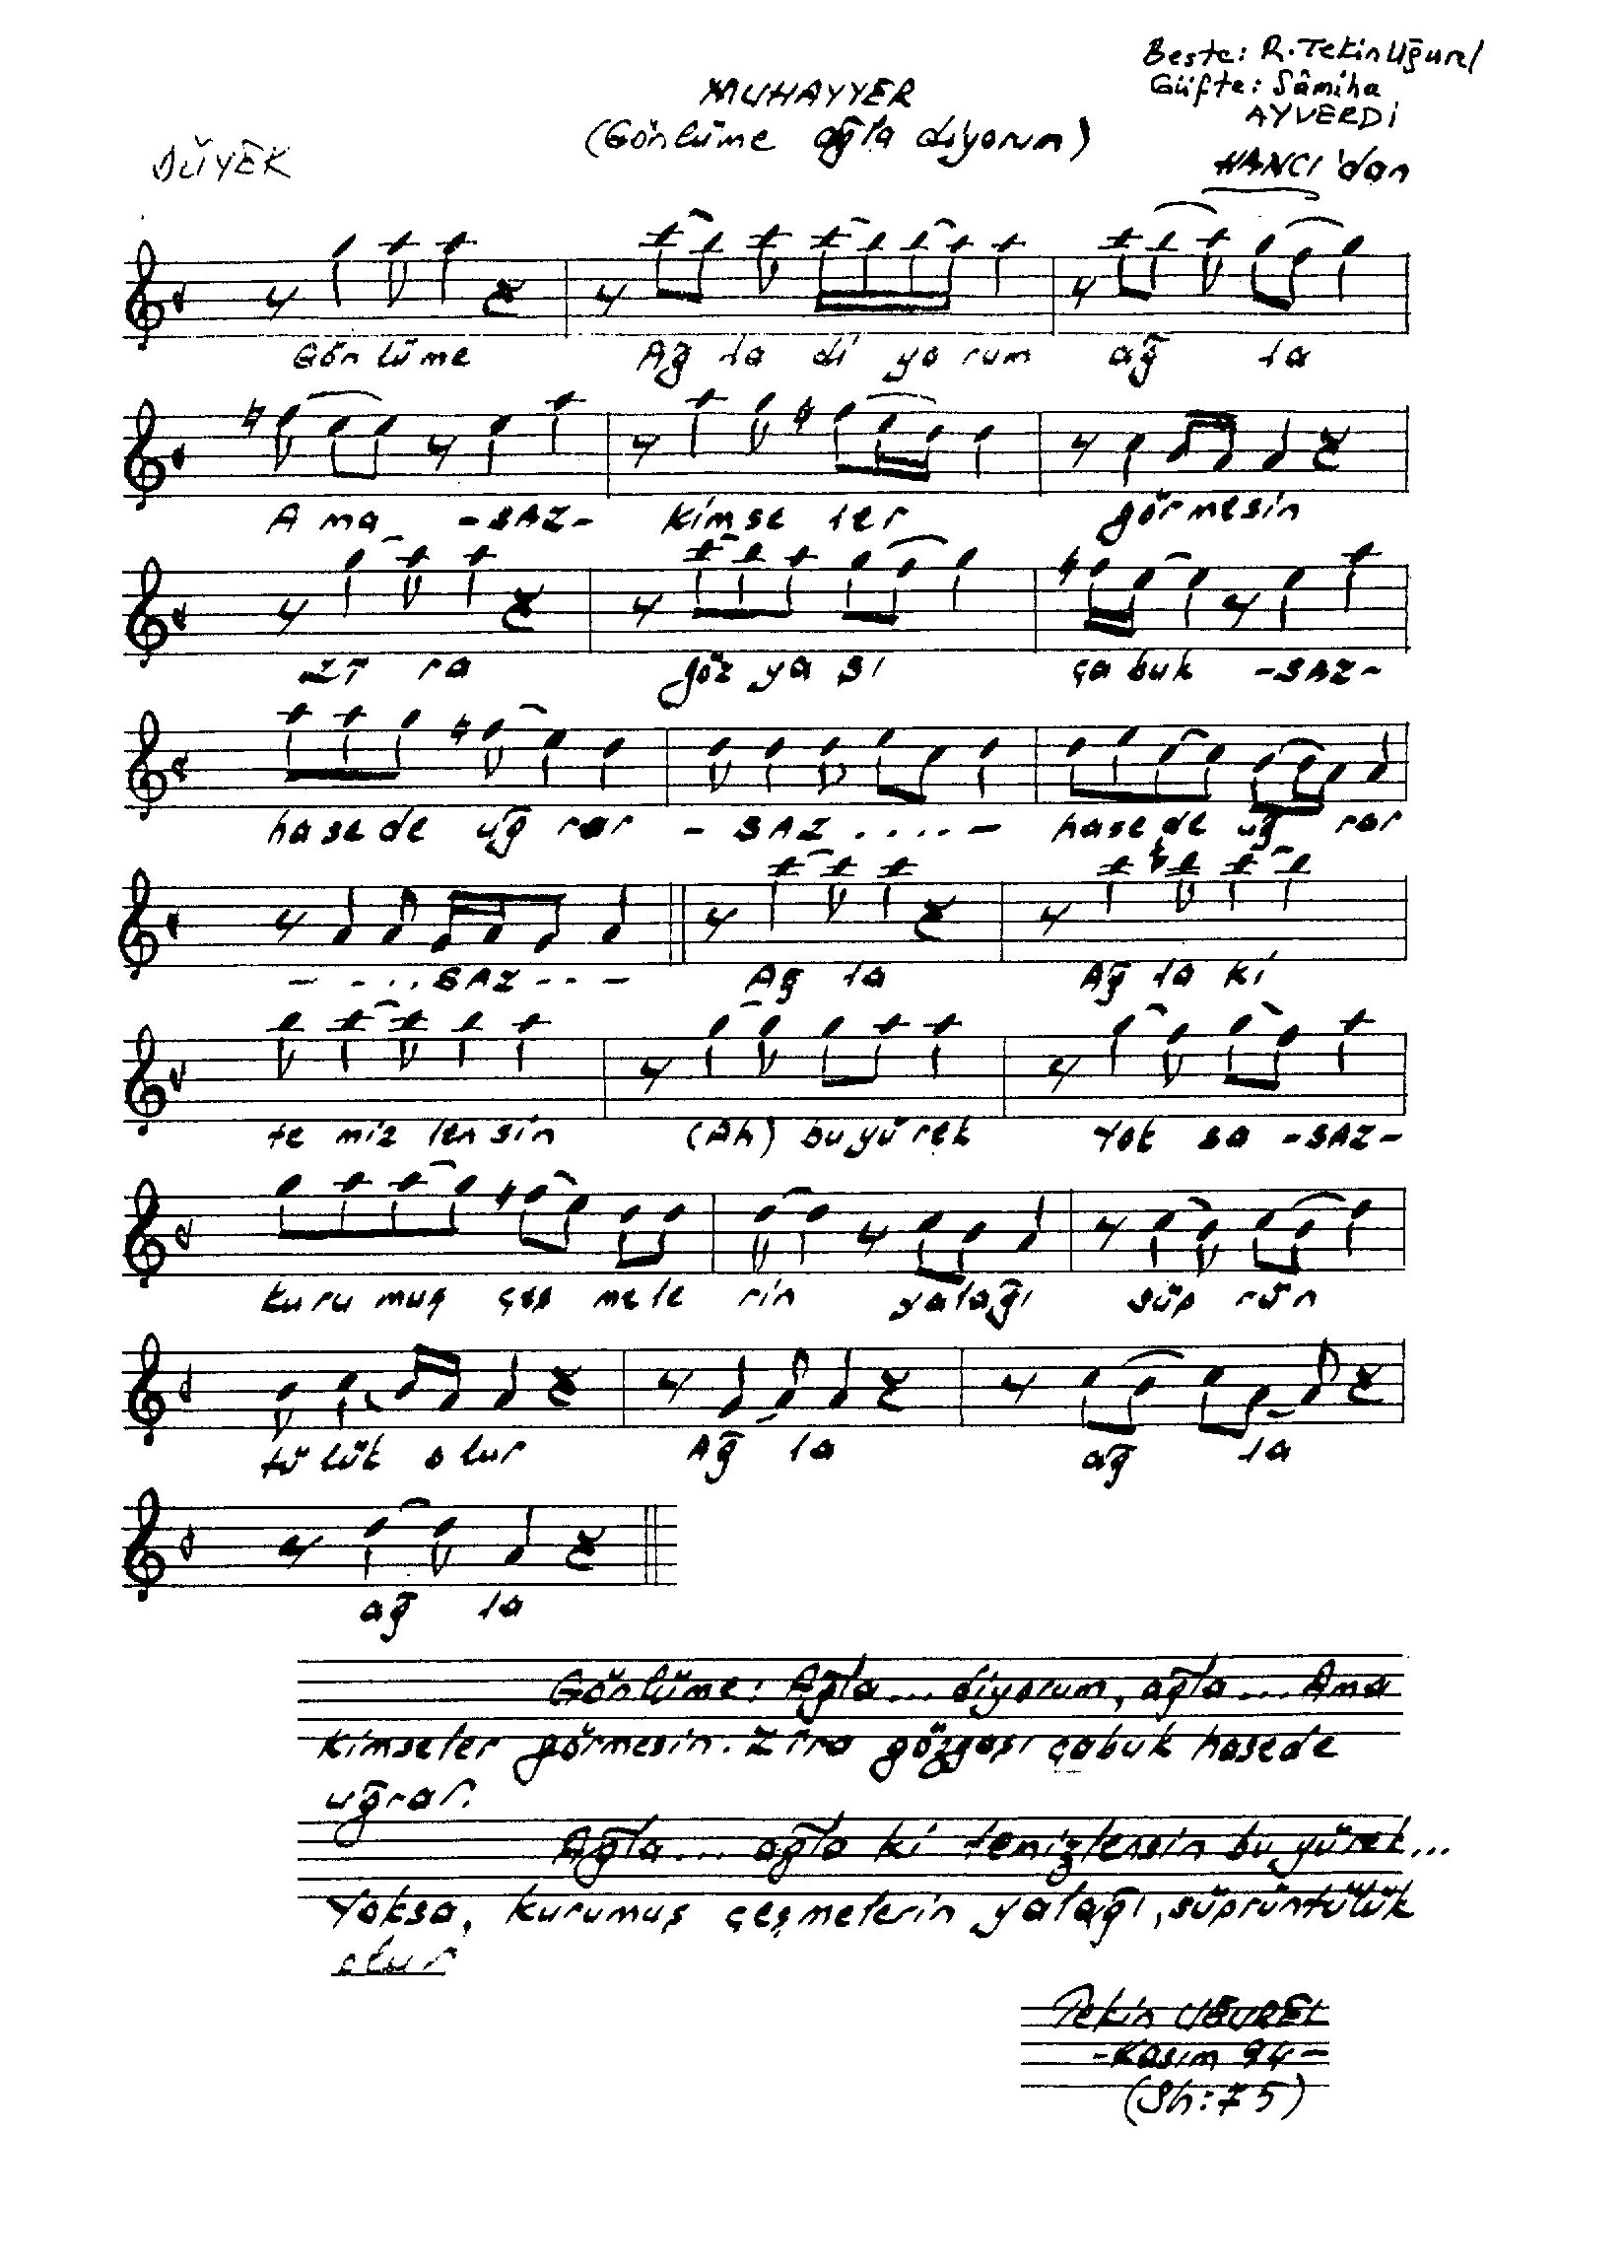 Beste: R. Tekin Uğurel
MUHAYYER
Güfte: Sâmiha
AYVERDİ
(Gönlüme ağla diyorum)
DÜYEK
HANCI'dan
Gön lü me Ağ la di yo rum ağ la
A ma -SAZ- kim se ler görmesin
Zî ra göz ya şı ça buk -SAZ-
ha se de uğ rar - SAZ .... - hase de uğ rar
- - .. SAZ -- - Ağ la Ağ la ki
te miz len sin (Ah) bu yü rek Yok sa -SAZ-
ku ru muş çeş me le rin yalağı süp rün
tü lük o lur Ağ la ağ la
ağ la
Gönlüme: Ağla... diyorum, ağla... Ama
kimseler görmesin. Zîra gözyaşı çabuk hasede
uğrar.
Ağla... ağla ki temizlensin bu yürek...
Yoksa, kurumuş çeşmelerin yalağı, süprüntülük
olur
Tekin UĞUREL
-Kasım 94-
(Sh: 75)